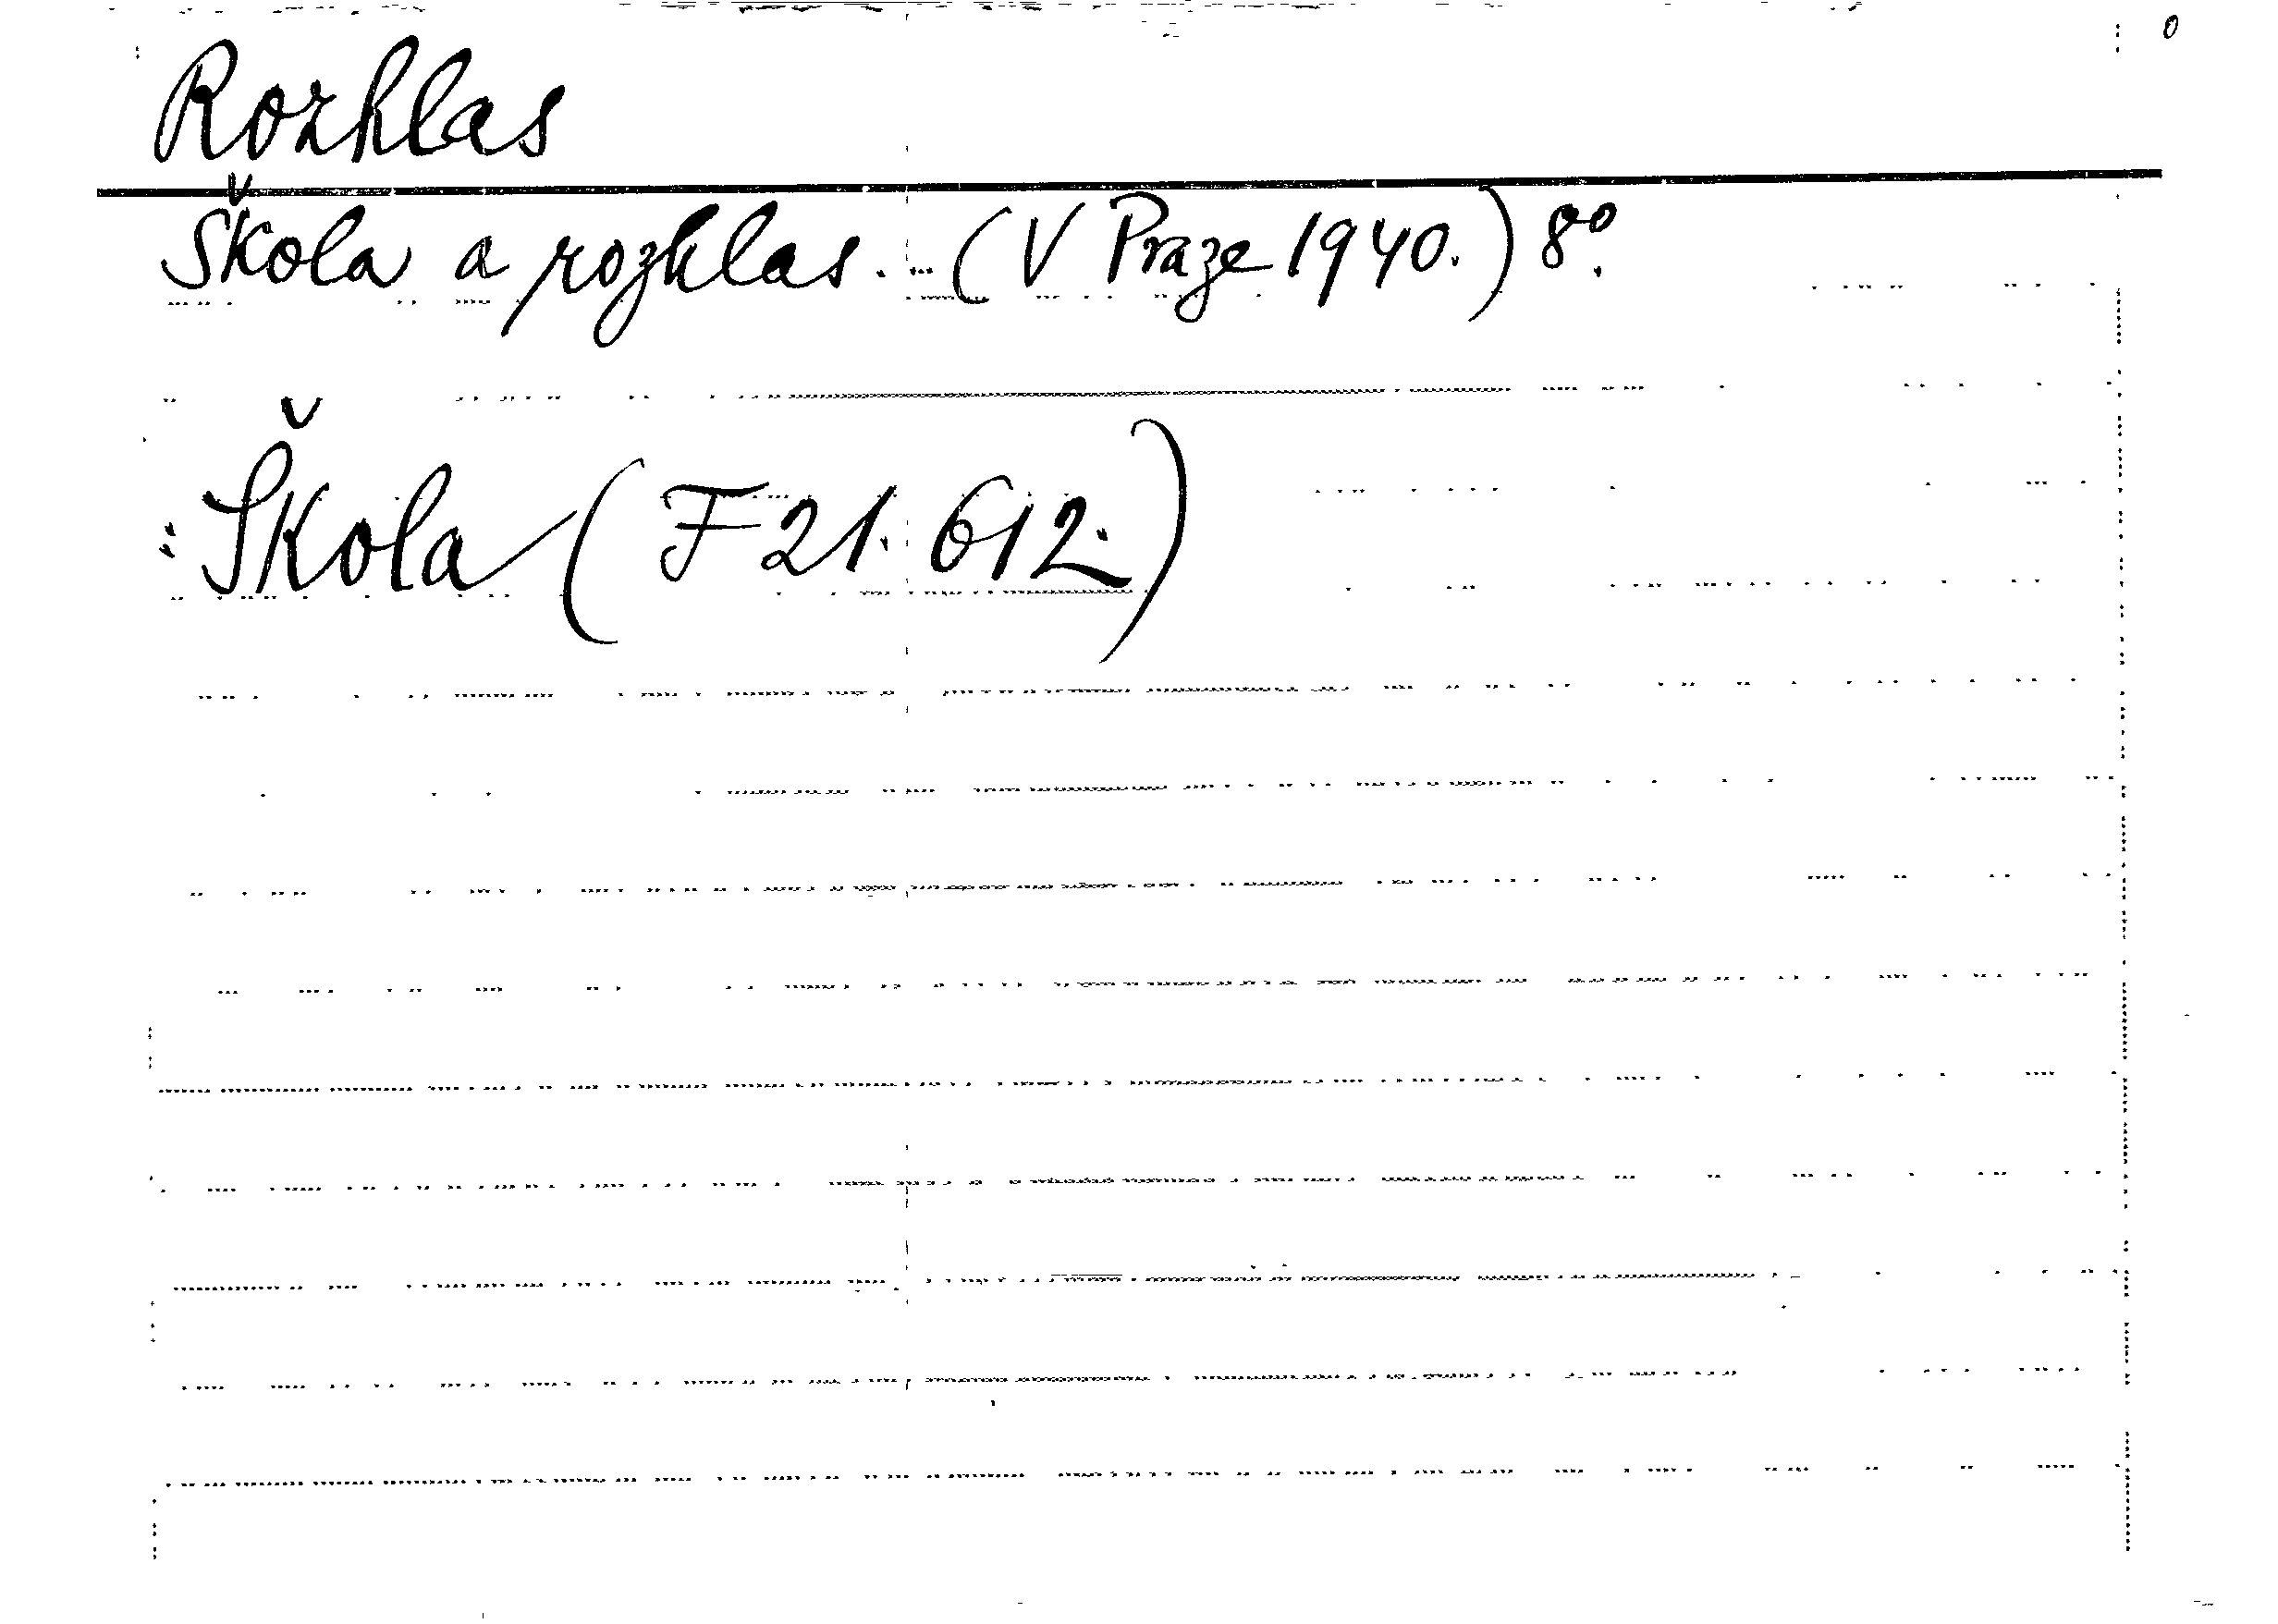 Rozhlas
Škola a rozhlas. - (V Praze 1940.) 8º.
: Škola (F 21. 612.)